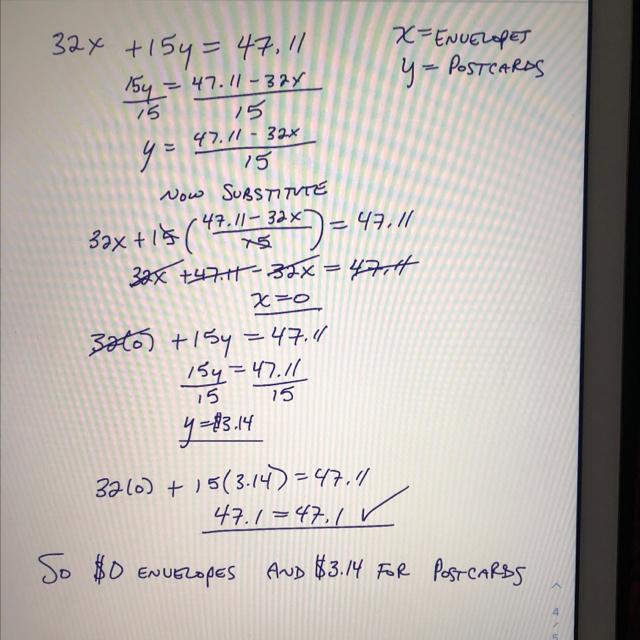 32x + 15y = 47.11
x = ENVELOPES
y = POSTCARDS
15y/15 = 47.11 - 32x/15
y = 47.11 - 32x/15
NOW SUBSTITUTE
32x + 15(47.11 - 32x/15) = 47.11
32x + 47.11 - 32x = 47.11
x = 0
32(0) + 15y = 47.11
15y/15 = 47.11/15
y = $3.14
32(0) + 15(3.14) = 47.11
47.1 = 47.1 ✓
SO $0 ENVELOPES AND $3.14 FOR POSTCARDS
4
/
5